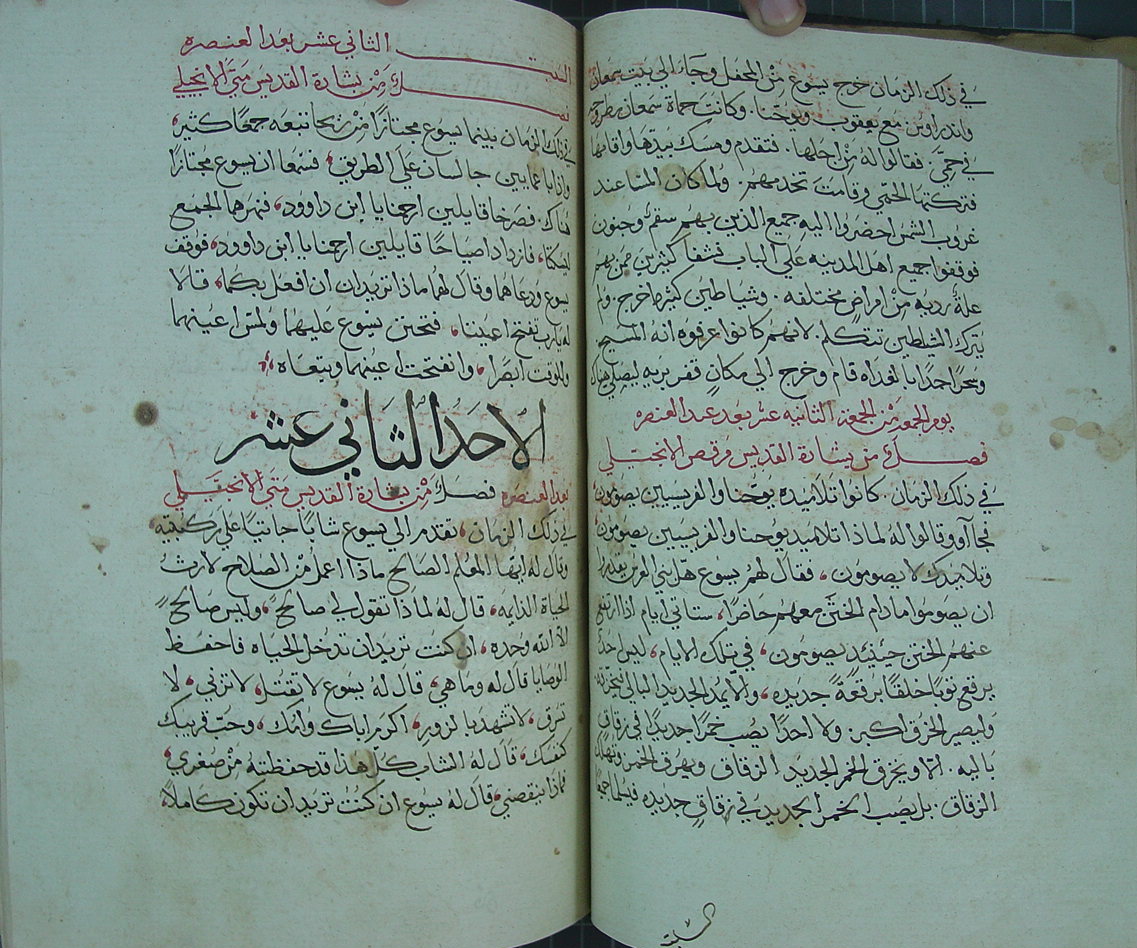 في ذلك الزمان خرج يسوع مِنْ المحفل وجَاء الي بيت سمعان
واندراوس مع يعقوب ويوحنا. وكانتَ حماة سمعان مطروحه
في حمَّي فقالوا له مِنْ اجلها. فتقدم ومسك بيدها واقامها
فتركتها الحمَي وقامت تخدمهم. ولما كان المسَا عند
غروب الشمس احضروا اليه جميع الذين بهم سقم وجنون
فوقفوا جميع اهل المدينه علي الباب فشفا كثيرين ممن بهم
علةٌ رديه مِنْ امراضٍ مختلفه. وشياطين كثيره اخرج. ولم
يترك الشياطين تتكلم. لانهم كانوا عرفوه انهُ المسيح
وسحرًا جدًا بالغداه قام وخرج الي مكانٍ قفر بريه ليصلي هناك
يوم الجمعه مِنْ الجمعه الثانيه عشر بعد عيد العنصره
فصل مِن بشارة القديس مرقص الانجيلي
في ذلك الزمان. كانوا تلاميذه يوحنا والفريسيين يصومون
فجاآو وقالوا له لماذا تلاميذ يوحنا والفريسيين يصومون
وتلاميذك لا يصومون، فقال لهم يسوع هل ابني العرس يقدرون
ان يصوموا مادام الختن معهم حاضرًا، ستاتي ايام اذا ارتفع
عنهم الختن حينيذٍ يصومون، في تلك الايام، ليس احد
يرقع ثوبًا خلقًا برقعةً جديده، والا يمد الجديد البالي فيخرقه
وليصير الخزق اكبر ولا احدًا يصُب خمرًا جديدًا في زقاق
باليه. الا ويخرق الخمر الجديد الزقاق ويهرق الخمر وتهلك
الزقاق. بل يصب الخمر الجديد في زقاقٍ جديده فيسلما جميعًا
السبت
السبت الثاني عشر بعد العنصره
فصل مِنْ بشارة القديس متيَ الانجيلي
في ذلك الزمان بينما يسوع مجتازًا مِنْ ريحا تبعه جمعًا كثير،
واذا باعمايين جالسان علي الطريق، فسمعا ان يسوع مجتازًا
هناك. فصرخا قايلين ارحمنا يا إبن داوود، فنهرهما الجميع
ليسكتا، فازدادا صياحًا قايلين ارحمنا يا ابن داوود، فوقف
يسوع ودعاهما وقال لهما ماذا تريدان ان افعل بكما، قالا
له يارب تفتح اعيننا، فتحنن يسوع عليهما ولمس اعينهما
وللوقت ابصَرا، وانفتحت اعينهما وتبعاه
الاَحَدُ الثَاني عَشر
بعد العنصره فصل مِنْ بشارة القديس متيَ الانجيلي
في ذلك الزمان، تقدم الي يسوع شابًا جاثيًا علي ركبتيه
وقال له ايها المعُلم الصَالح ماذا اعمل مِنْ الصَلاح لارث
الحياة الدايمه، قال له لماذا تقول لي صالح، وليس صالحً
الا الله وحده، ان كنت تريد ان تدخل الحياه فاحفظ
الوصايا قال له وما هي، قال لهُ يسوع لا تقتل، لا تزني، لا
تسرق، لا تشهد بالزور، اكرم اباك وامك، وحبّ قريبك
كنفسك، قال له الشاب كل هذا قد حفظته مِنْ صغري،
فماذا ينقصني، قال له يسوع ان كنتُ تريد ان تكون كاملاً،